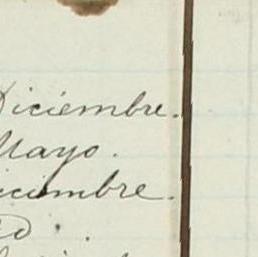 Diciembre.
Mayo.
Diciembre.